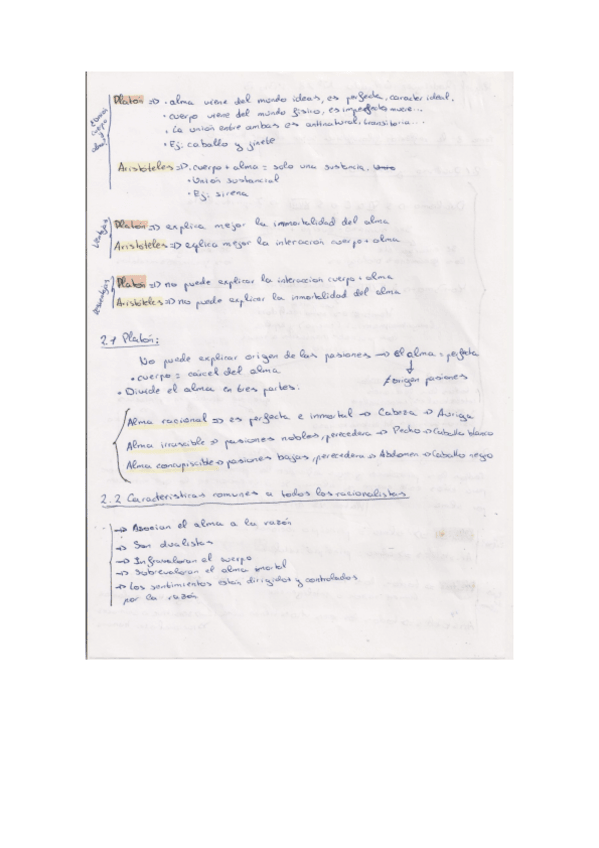 Platón => · alma viene del mundo ideas, es perfecta, caracter ideal.
· cuerpo viene del mundo físico, es imperfecto muere...
· La unión entre ambas es antinatural, transitoria...
· Ej: caballo y jinete
Aristóteles => · cuerpo + alma = solo una sustancia.
· Unión sustancial
· Ej: sirena
Ventajas
Platón => explica mejor la inmortalidad del alma
Aristóteles => explica mejor la interacción cuerpo + alma
Desventajas
Platón => no puede explicar la interacción cuerpo + alma
Aristóteles => no puede explicar la inmortalidad del alma
2.1 Platón:
No puede explicar origen de las pasiones → el alma = perfecta
· cuerpo = cárcel del alma
≠ origen pasiones
· Divide el alma en tres partes:
Alma racional => es perfecta e inmortal → Cabeza → Auriga
Alma irascible → pasiones nobles, perecedera → Pecho → Caballo blanco
Alma concupiscible → pasiones bajas, perecedera → Abdomen → Caballo negro
2.2 Características comunes a todos los racionalistas
→ Asocian el alma a la razón
→ Son dualistas
→ Infravaloran el cuerpo
→ Sobrevaloran el alma
→ Los sentimientos están dirigidos y controlados
por la razón